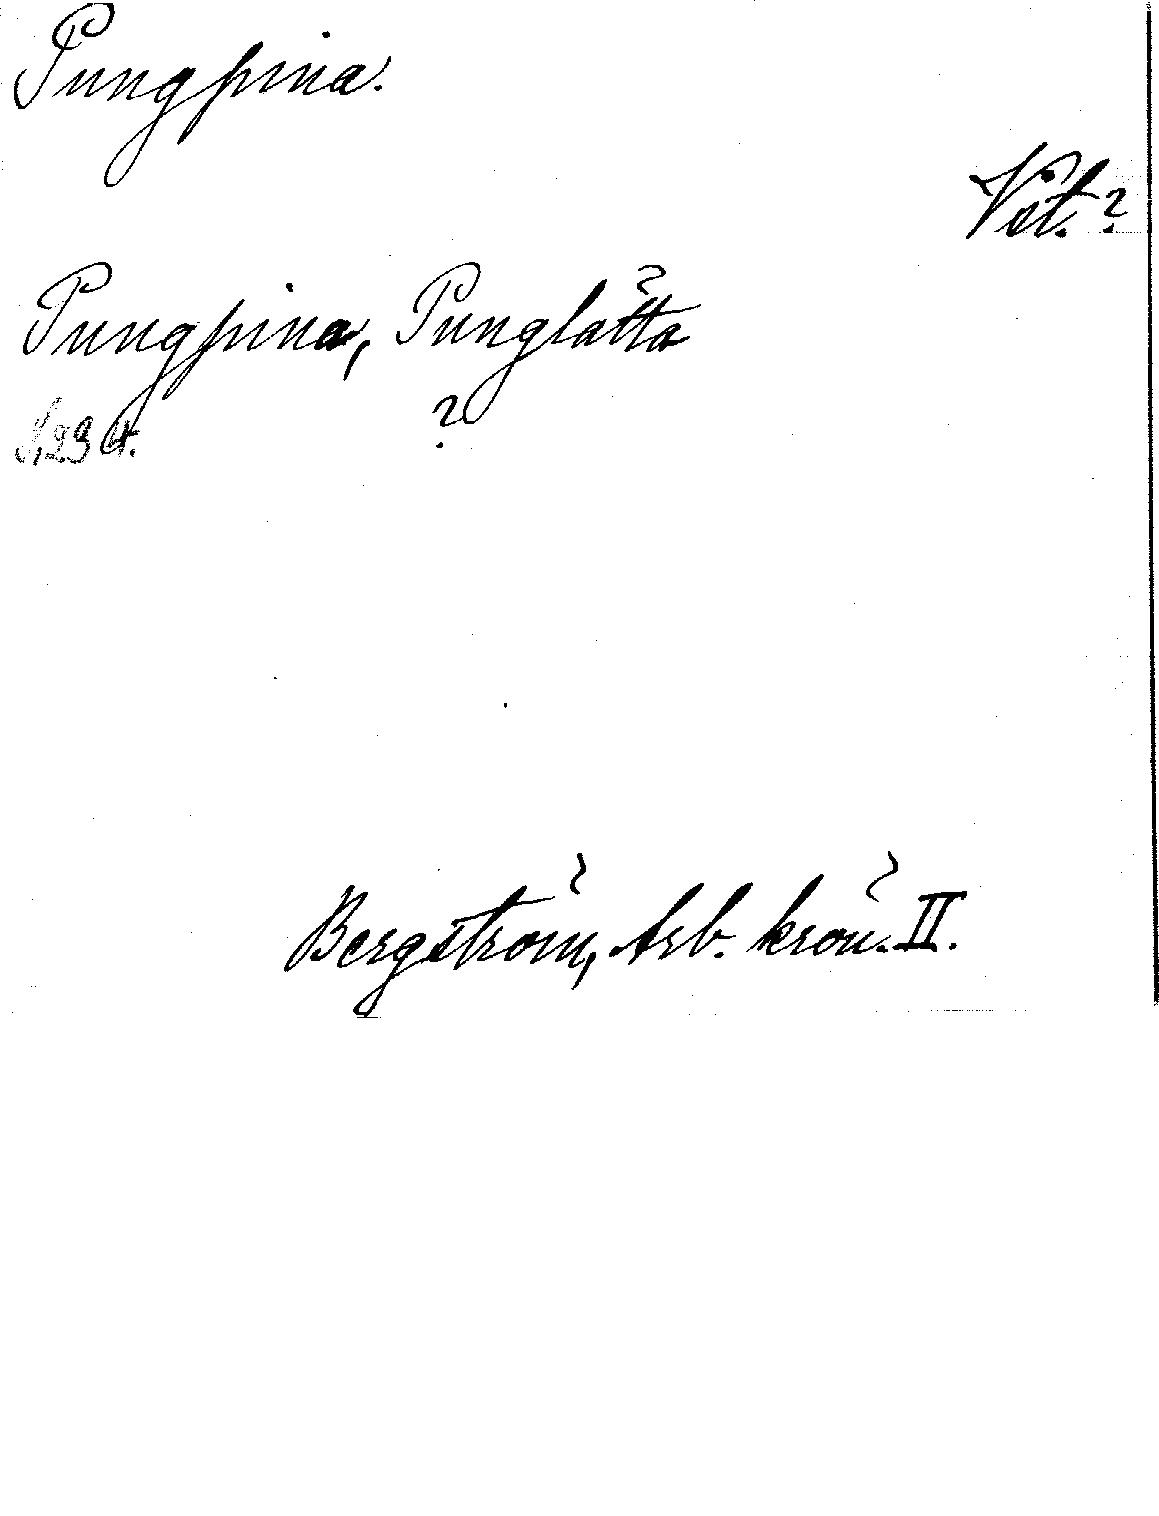 Pungpina.
Vet.?
Pungpina, Punglätta
S, 294. ?
Bergström, Arb. krön. II.